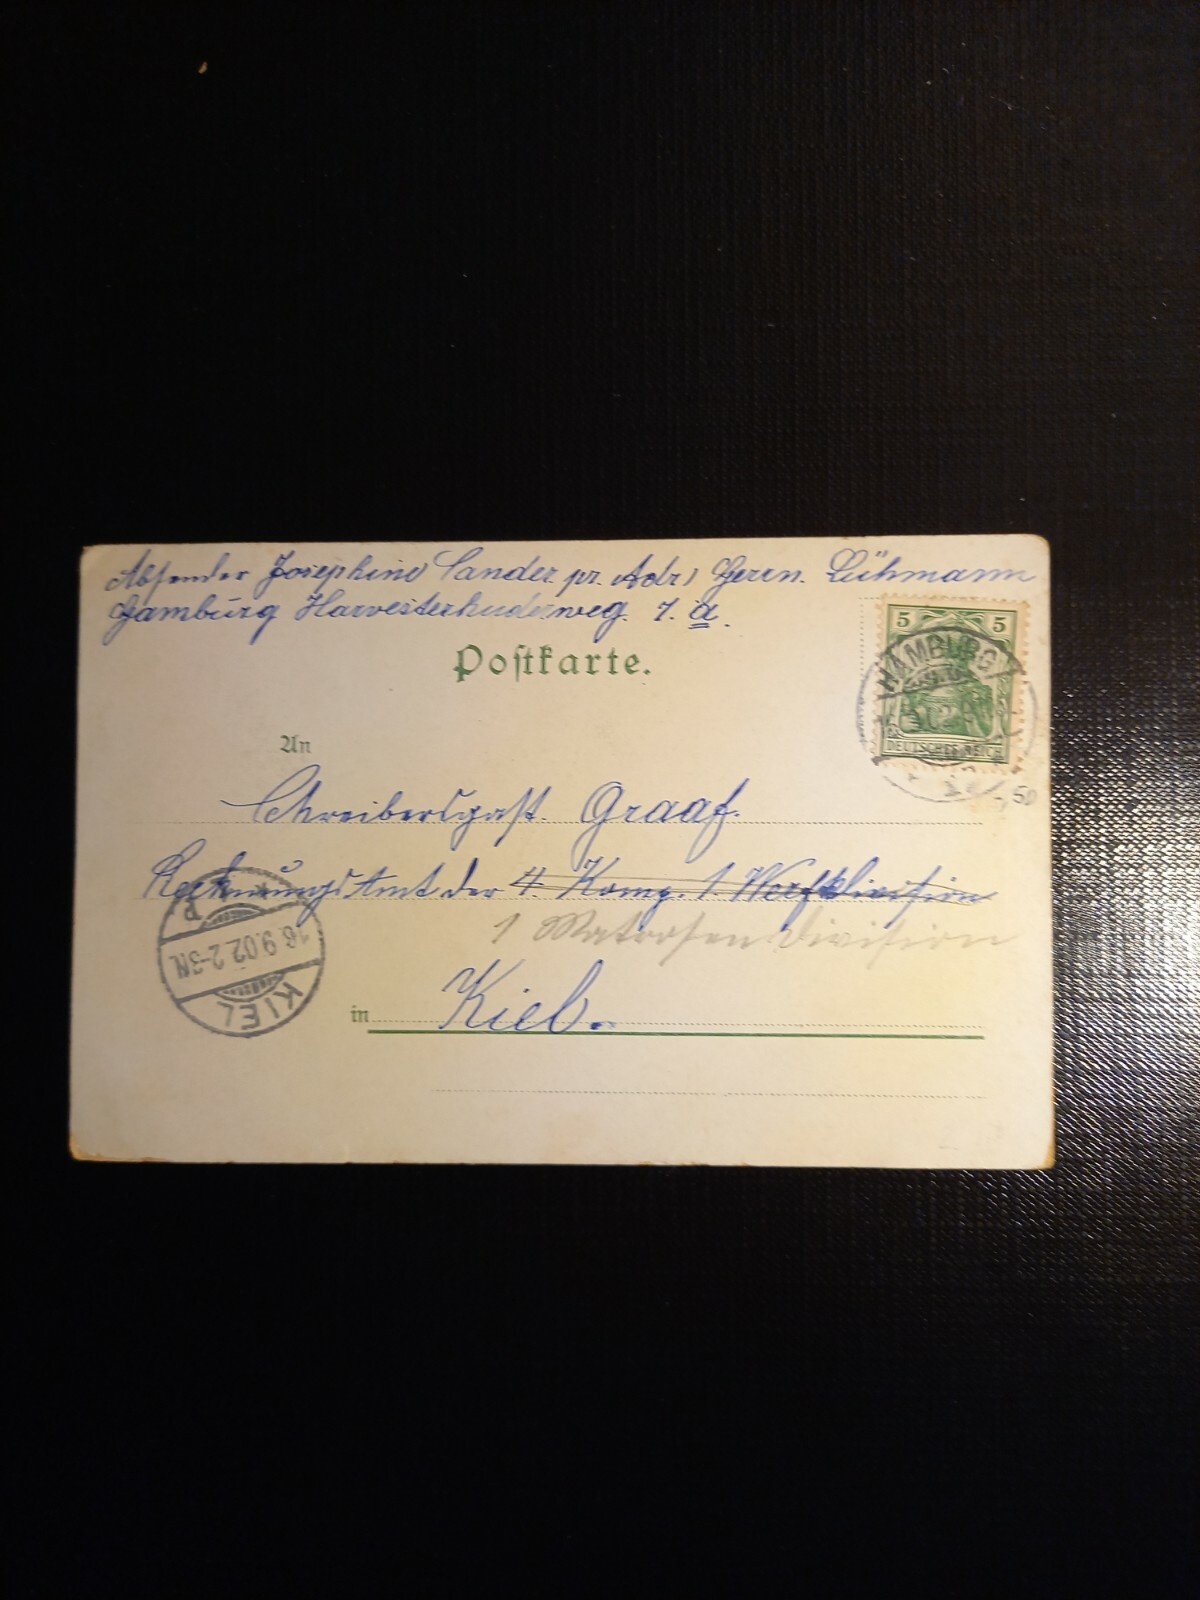 Absender Josephine Sander pr. Adr. Herrn. Lühmann
Hamburg Harvesterhuderweg. 7. a.
Postkarte.
5 5
HAMBURG
DEUTSCHES REICH
An
Schreibersgast. Graaf.
Rechnungs Amt der 4. Komp. 1. Werftdivision
1 Matrosen Division
16.9.02 2-3N.
KIEL
in Kiel.
50